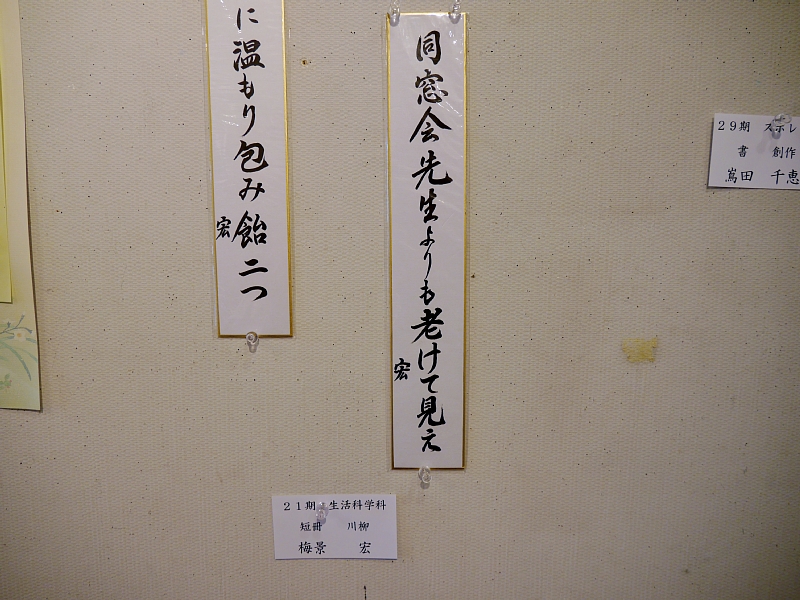 同窓会先生よりも老けて見え
宏
に温もり包み飴二つ
宏
21期 生活科学科
短冊 川柳
梅景 宏
29期 スポレ
書 創作
嶌田 千恵